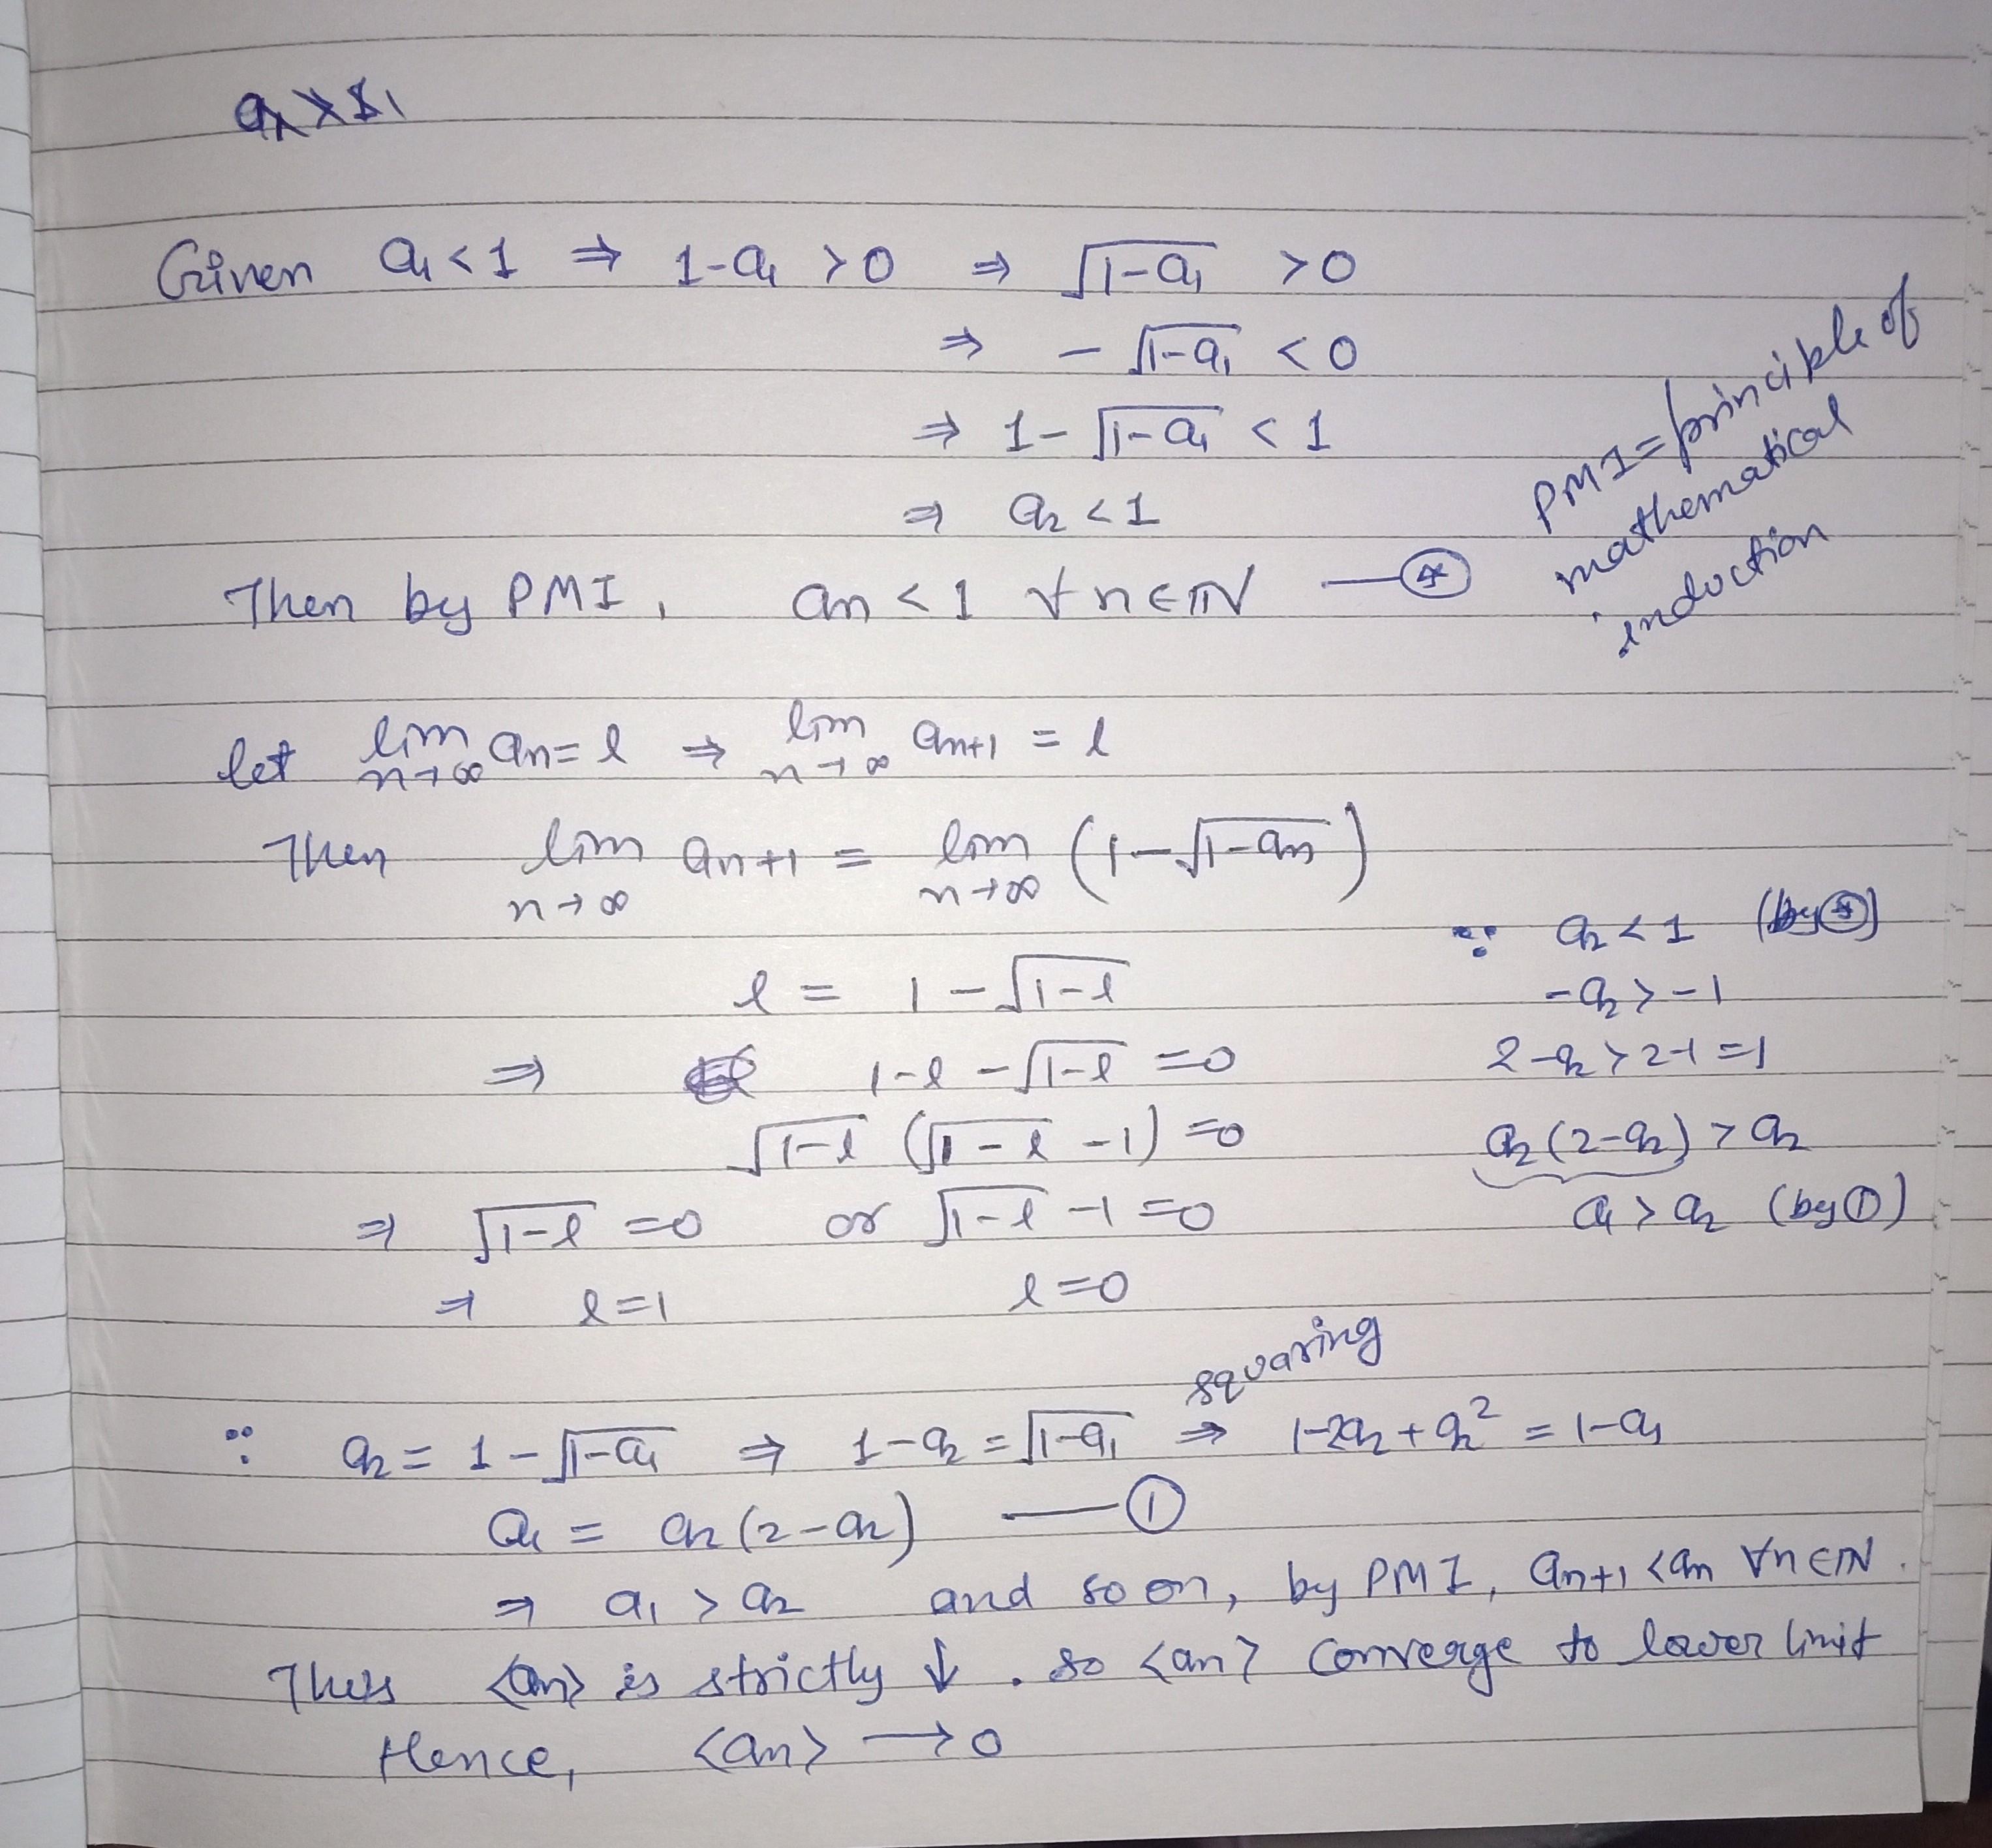 Given a₁ < 1 ⇒ 1-a₁ > 0 ⇒ √(1-a₁) > 0
⇒ -√(1-a₁) < 0
⇒ 1-√(1-a₁) < 1
⇒ a₂ < 1
PMI = principle of
mathematical
induction
Then by PMI, an < 1 ∀ n∈ℕ —(*)
let lim n→∞ an = l ⇒ lim n→∞ an+1 = l
Then lim n→∞ an+1 = lim n→∞ (1-√(1-an))
l = 1-√(1-l)
⇒ 1-l-√(1-l) = 0
√(1-l) (√(1-l) -1) = 0
⇒ √(1-l) = 0 or √(1-l) -1 = 0
⇒ l = 1 l = 0
∵ a₂ < 1 (by (*))
-a₂ > -1
2-a₂ > 2-1 = 1
a₂(2-a₂) > a₂
a₁ > a₂ (by ①)
squaring
∵ a₂ = 1-√(1-a₁) ⇒ 1-a₂ = √(1-a₁) ⇒ 1-2a₂+a₂² = 1-a₁
a₁ = a₂(2-a₂) —①
⇒ a₁ > a₂ and so on, by PMI, an+1 < an ∀n∈ℕ.
Thus <an> is strictly ↓. so <an> converge to lower limit
Hence, <an> → 0